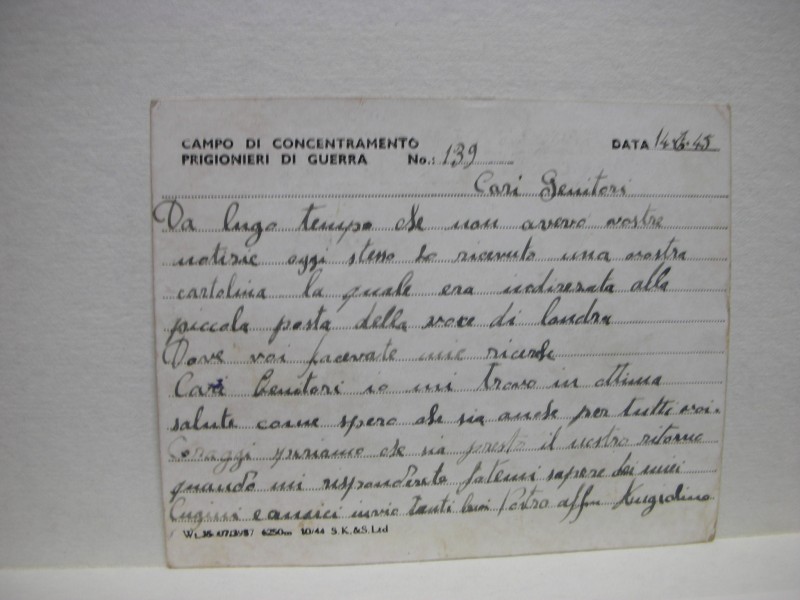 CAMPO DI CONCENTRAMENTO
PRIGIONIERI DI GUERRA No.: 139 DATA
Cari Genitori
Da lugo tempo che non avevo vostre
notizie oggi stesso ho ricevuto una vostra
cartolina la quale era indirezata alla
piccola posta della voce di londra
Dove voi facevate mie ricerche
Cari Genitori io mi trovo in ottima
salute come spero che sia anche per tutti voi.
Coraggi che sia presto il nostro ritorno
quando mi risponderete fatemi sapere dei miei
Cugini e amici invio tanti baci
6250m 10/44 S.K.&S.Ltd